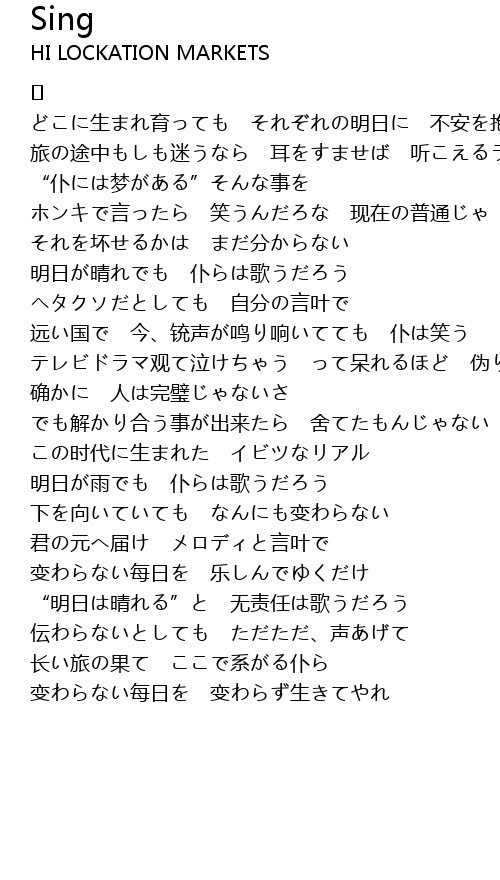 Sing
HI LOCKATION MARKETS
[]
どこに生まれ育っても　それぞれの明日に　不安を抱
旅の途中もしも迷うなら　耳をすませば　听こえるラ
“仆には梦がある”そんな事を
ホンキで言ったら　笑うんだろな　现在の普通じゃ
それを坏せるかは　まだ分からない
明日が晴れでも　仆らは歌うだろう
ヘタクソだとしても　自分の言叶で
远い国で　今、铳声が鸣り响いてても　仆は笑う
テレビドラマ观て泣けちゃう　って呆れるほど　伪り
确かに　人は完璧じゃないさ
でも解かり合う事が出来たら　舍てたもんじゃない
この时代に生まれた　イビツなリアル
明日が雨でも　仆らは歌うだろう
下を向いていても　なんにも变わらない
君の元へ届け　メロディと言叶で
变わらない每日を　乐しんでゆくだけ
“明日は晴れる”と　无责任は歌うだろう
伝わらないとしても　ただただ、声あげて
长い旅の果て　ここで系がる仆ら
变わらない每日を　变わらず生きてやれ